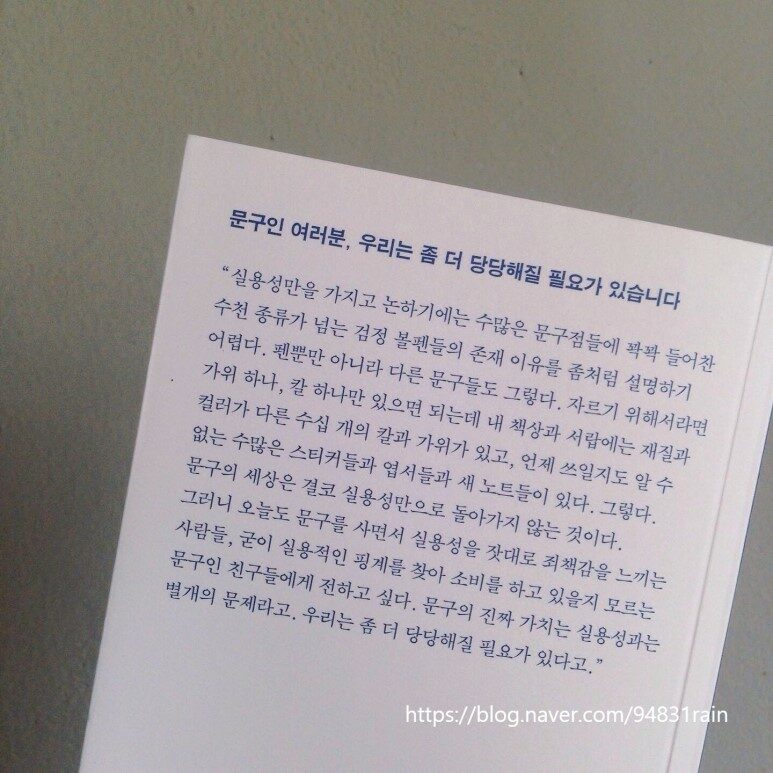 문구인 여러분, 우리는 좀 더 당당해질 필요가 있습니다
“실용성만을 가지고 논하기에는 수많은 문구점들에 꽉꽉 들어찬
수천 종류가 넘는 검정 볼펜들의 존재 이유를 좀처럼 설명하기
어렵다. 펜뿐만 아니라 다른 문구들도 그렇다. 자르기 위해서라면
가위 하나, 칼 하나만 있으면 되는데 내 책상과 서랍에는 재질과
컬러가 다른 수십 개의 칼과 가위가 있고, 언제 쓰일지도 알 수
없는 수많은 스티커들과 엽서들과 새 노트들이 있다. 그렇다.
문구의 세상은 결코 실용성만으로 돌아가지 않는 것이다.
그러니 오늘도 문구를 사면서 실용성을 잣대로 죄책감을 느끼는
사람들, 굳이 실용적인 핑계를 찾아 소비를 하고 있을지 모르는
문구인 친구들에게 전하고 싶다. 문구의 진짜 가치는 실용성과는
별개의 문제라고. 우리는 좀 더 당당해질 필요가 있다고.”
https://blog.naver.com/94831rain